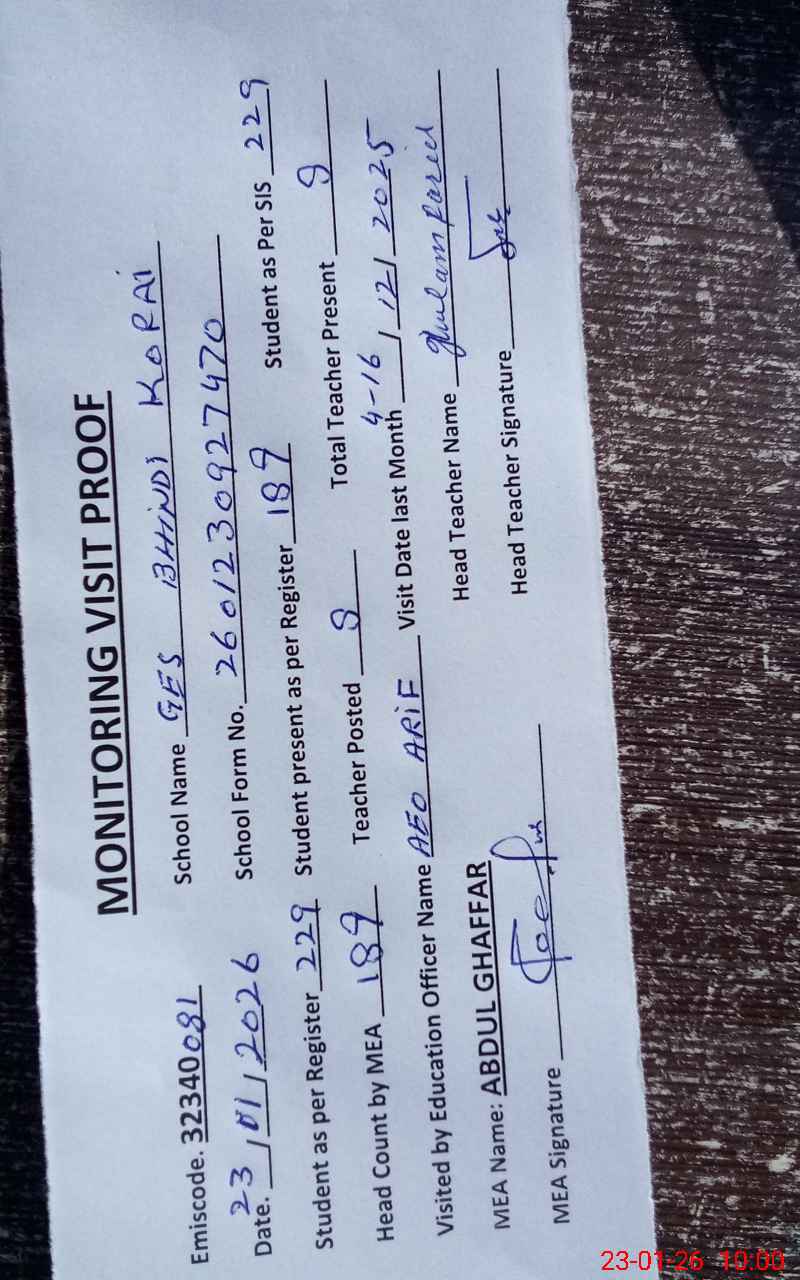 MONITORING VISIT PROOF
Emiscode. 32340081 School Name GES BHINDI KORAI
Date. 23/01/2026 School Form No. 2601230927470
Student as per Register 229 Student present as per Register 189 Student as Per SIS 229
Head Count by MEA 189 Teacher Posted 9 Total Teacher Present 9
Visited by Education Officer Name AEO ARIF Visit Date last Month 4-16/12/2025
MEA Name: ABDUL GHAFFAR Head Teacher Name Ghulam Farid
MEA Signature Head Teacher Signature
23-01-26 10:00